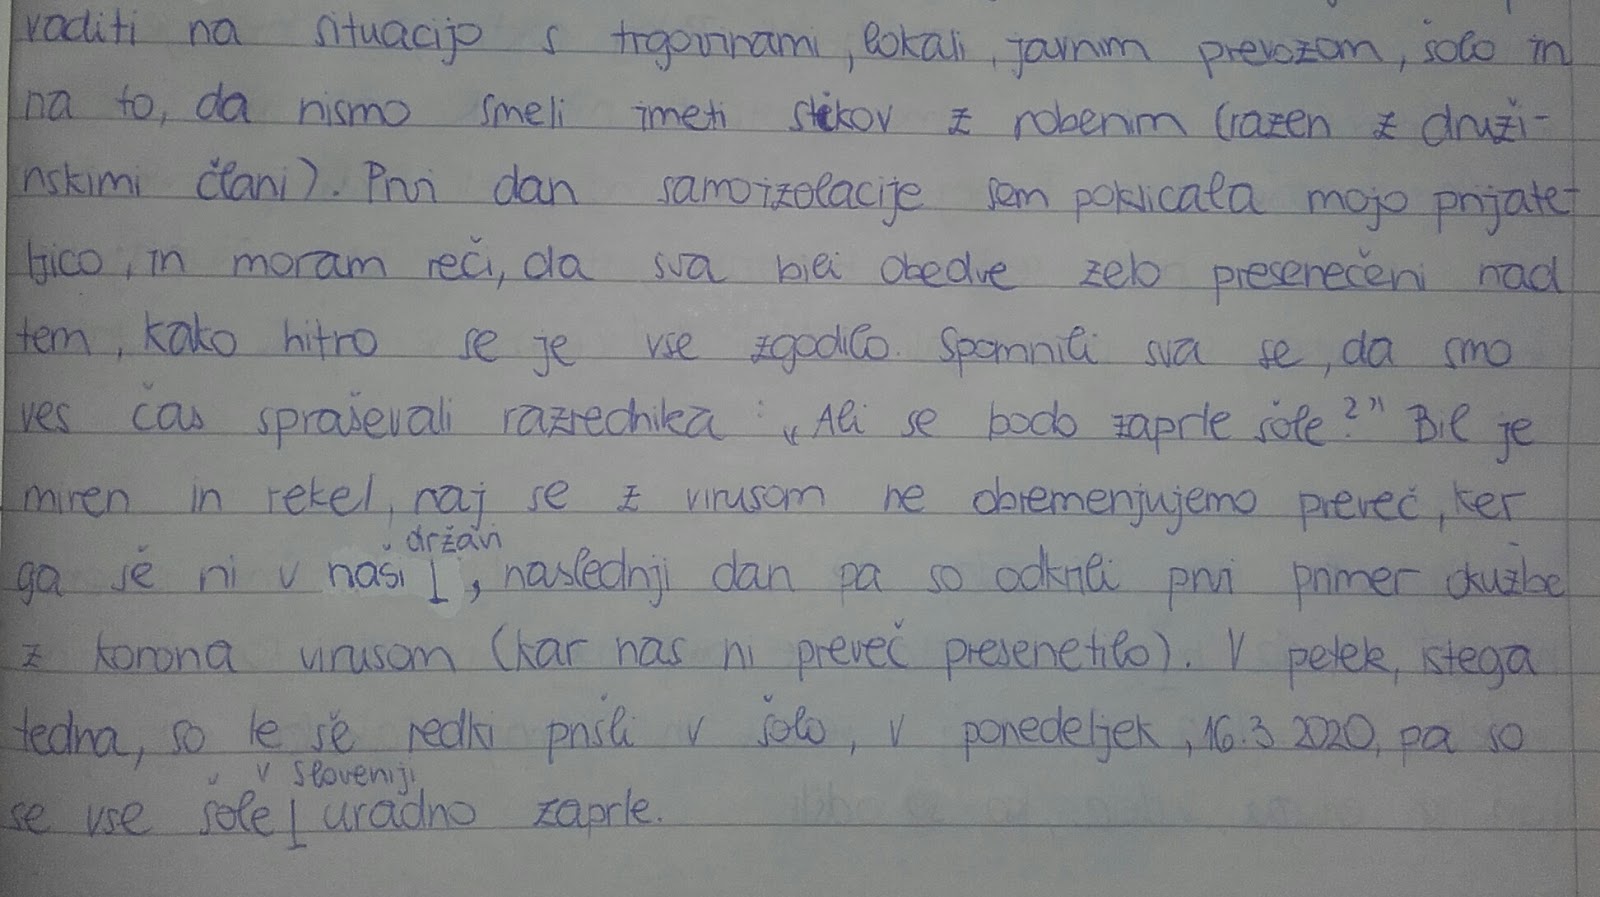 vaditi na situacijo s trgovinami, lokali, javnim prevozom, šolo in
na to, da nismo smeli imeti stikov z nobenim (razen z druži-
nskimi člani). Prvi dan samoizolacije sem poklicala mojo prijate-
ljico, in moram reči, da sva bili obedve zelo presenečeni nad
tem, kako hitro se je vse zgodilo. Spomnili sva se, da smo
ves čas spraševali razrednika: „Ali se bodo zaprle šole?” Bil je
miren in rekel, naj se z virusom ne obremenjujemo preveč, ker
državi
ga še ni v naši, naslednji dan pa so odkrili prvi primer okužbe
z korona virusom (kar nas ni preveč presenetilo). V petek, istega
tedna, so le še redki prišli v šolo, v ponedeljek, 16.3 2020, pa so
v Sloveniji
se vse šole uradno zaprle.